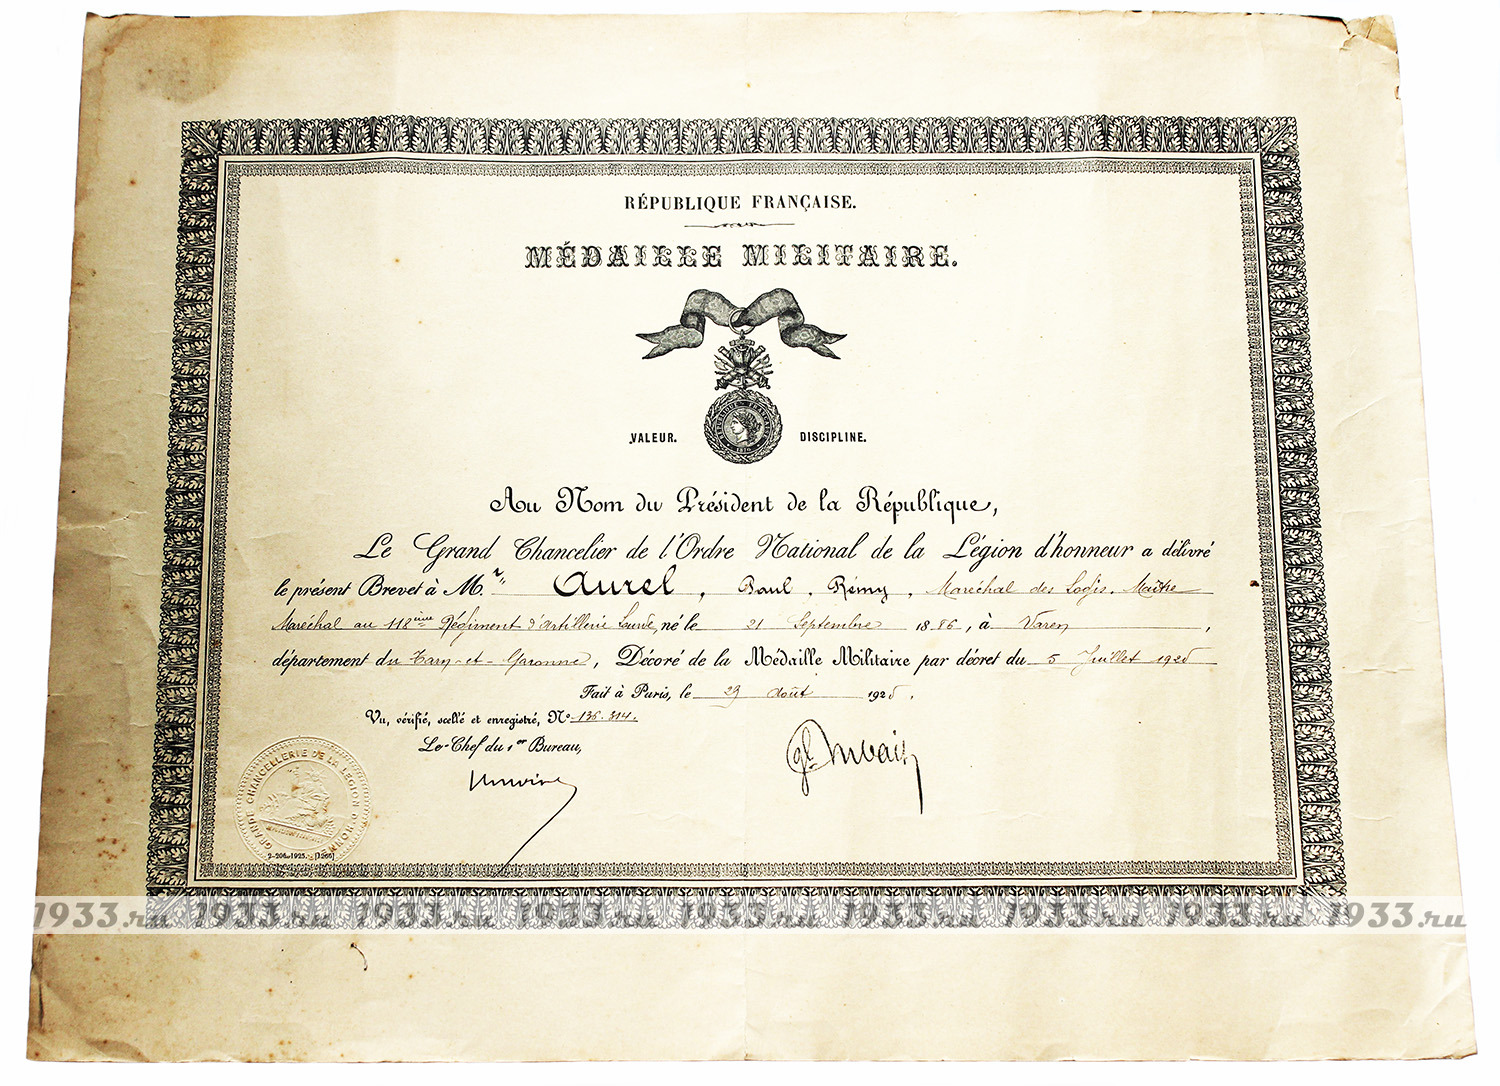 RÉPUBLIQUE FRANÇAISE.
MÉDAILLE MILITAIRE.
RÉPUBLIQUE FRANÇAISE
1870
VALEUR. DISCIPLINE.
Au Nom du Président de la République,
Le Grand Chancelier de l'Ordre National de la Légion d'honneur a délivré
le présent Brevet à M. r Aurel, Paul, Rémy, Maréchal des Logis, Maître
Maréchal au 118ième Régiment d'Artillerie Lourde, né le 21 Septembre 1886, à Varen,
département du Tarn-et-Garonne, Décoré de la Médaille Militaire par décret du 5 Juillet 1925
Fait à Paris, le 29 août 1925.
Vu, vérifié, scellé et enregistré, No 136.314.
Le Chef du 1er Bureau,
GRANDE CHANCELLERIE DE LA LÉGION D'HONNEUR
2-206-1925. - [1266]
1933.ru 1933.ru 1933.ru 1933.ru 1933.ru 1933.ru 1933.ru 1933.ru 1933.ru